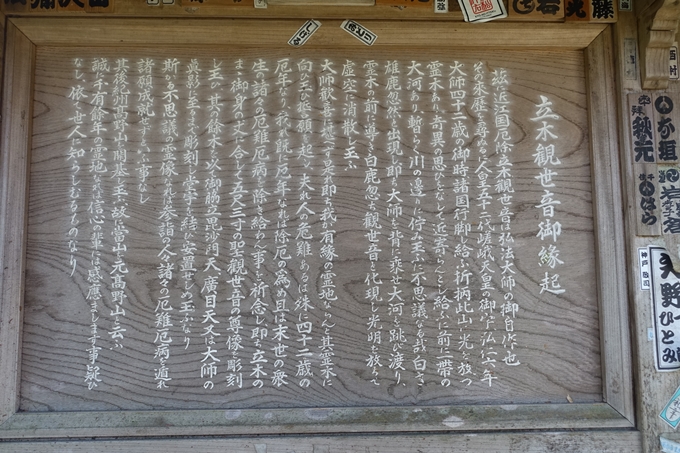 立木觀世音御縁起
抑近江国厄除立木観世音は弘法大師の御自作也
其の来歴を尋ぬるに人皇五十二代嵯峨天皇の御宇弘仁六年
大師四十二歳の御時諸国行脚し給ふ折柄此山に光を放つ
霊木あり奇異の思ひをなして近寄らんとし給ふに前に一帯の
大河あり暫らく川の邊りに佇み玉ふに不思議なる哉白き
雄鹿忽然と出現し即ち大師を背に乗せ大河を跳び渡り
霊木の前に導き白鹿忽ち觀世音と化現し光明を放ちて
虚空に消散し玉ふ
大師歓喜に堪へず是れ即ち我が有縁の霊地ならん其霊木に
向ひ玉ひ誓願を起し夫れ人の危難あるは殊に四十二歳の
厄年なり我が既に厄年なれば除厄の為め且は末世の衆
生の諸々の厄難厄病を除き給はん事を祈念し即ち立木の
まゝ御身の丈に合して五尺三寸の聖觀世音の尊像を彫刻
し玉ひ其の餘木を以て御脇立毘沙門天、廣目天又は大師の
眞影に至るまで彫刻し堂宇を結び安置せしめ玉ふなり
斯かる不思議の霊像なれば参詣の人々諸の厄難厄病を遁れ
諸願成就せずと云ふ事なし
其後紀州高野山を開基し玉ふ故に當山を元高野山と云ふ
誠に千有餘年の霊地なれば信心の輩には感應まします事疑ひ
なし依て世人に知らしむるものなり
秋元
神戸
矢野ひとみ
西村